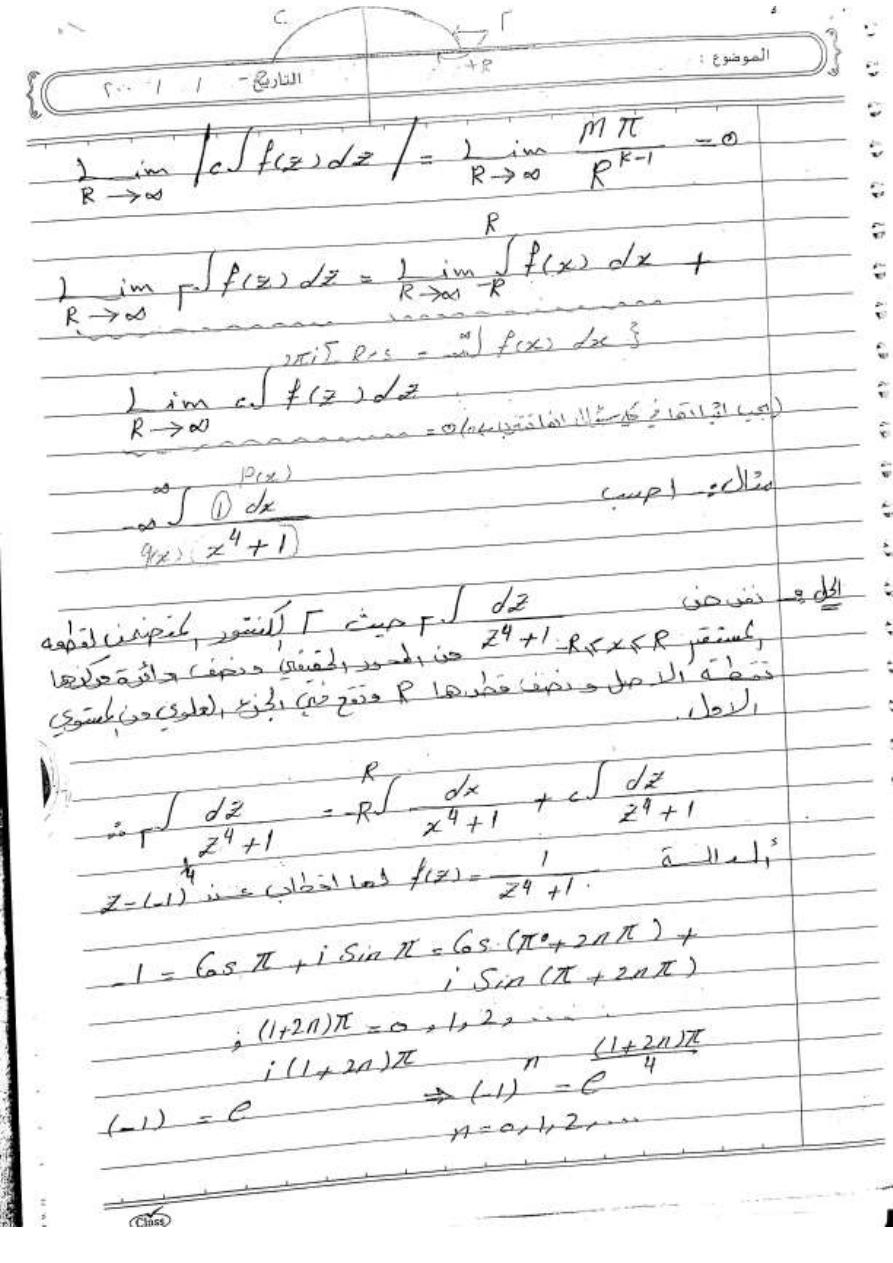 C Γ
+R
الموضوع :
التاريخ - / / ٢٠٠
Lim R→∞ |c∫ f(z) dz| = Lim R→∞ Mπ / R^(K-1) = 0
Lim R→∞ Γ∫ f(z) dz = Lim R→∞ -R∫^R f(x) dx +
2πi Σ Res = -∞∫^∞ f(x) dx }
Lim R→∞ c∫ f(z) dz
= 0 (يجب اثباتها في كل سؤال
مثال :- احسب
-∞∫^∞ ① dx / (x^4 + 1)
P(x)
q(x)
الحل :- نفرض Γ∫ dz / z^4 + 1 حيث Γ الكنتور المتضمن لقطعه
المستقيم -R ≤ x ≤ R من المحور الحقيقي ونصف دائرة مركزها
نقطة الاصل ونصف قطرها R وتقع في الجزء العلوي من المستوي
الاول.
∴ Γ∫ dz / z^4 + 1 = -R∫^R dx / x^4 + 1 + c∫ dz / z^4 + 1
الدالة f(z) = 1 / z^4 + 1 . لها اقطاب عند z = (-1)^1/4
-1 = Cos π + i Sin π = Cos (π + 2nπ) +
i Sin (π + 2nπ)
; (1+2n)π = 0, 1, 2, .....
(-1) = e^i(1+2n)π ⇒ (-1)^n = e^(1+2n)π/4
n = 0, 1, 2, ....
Class